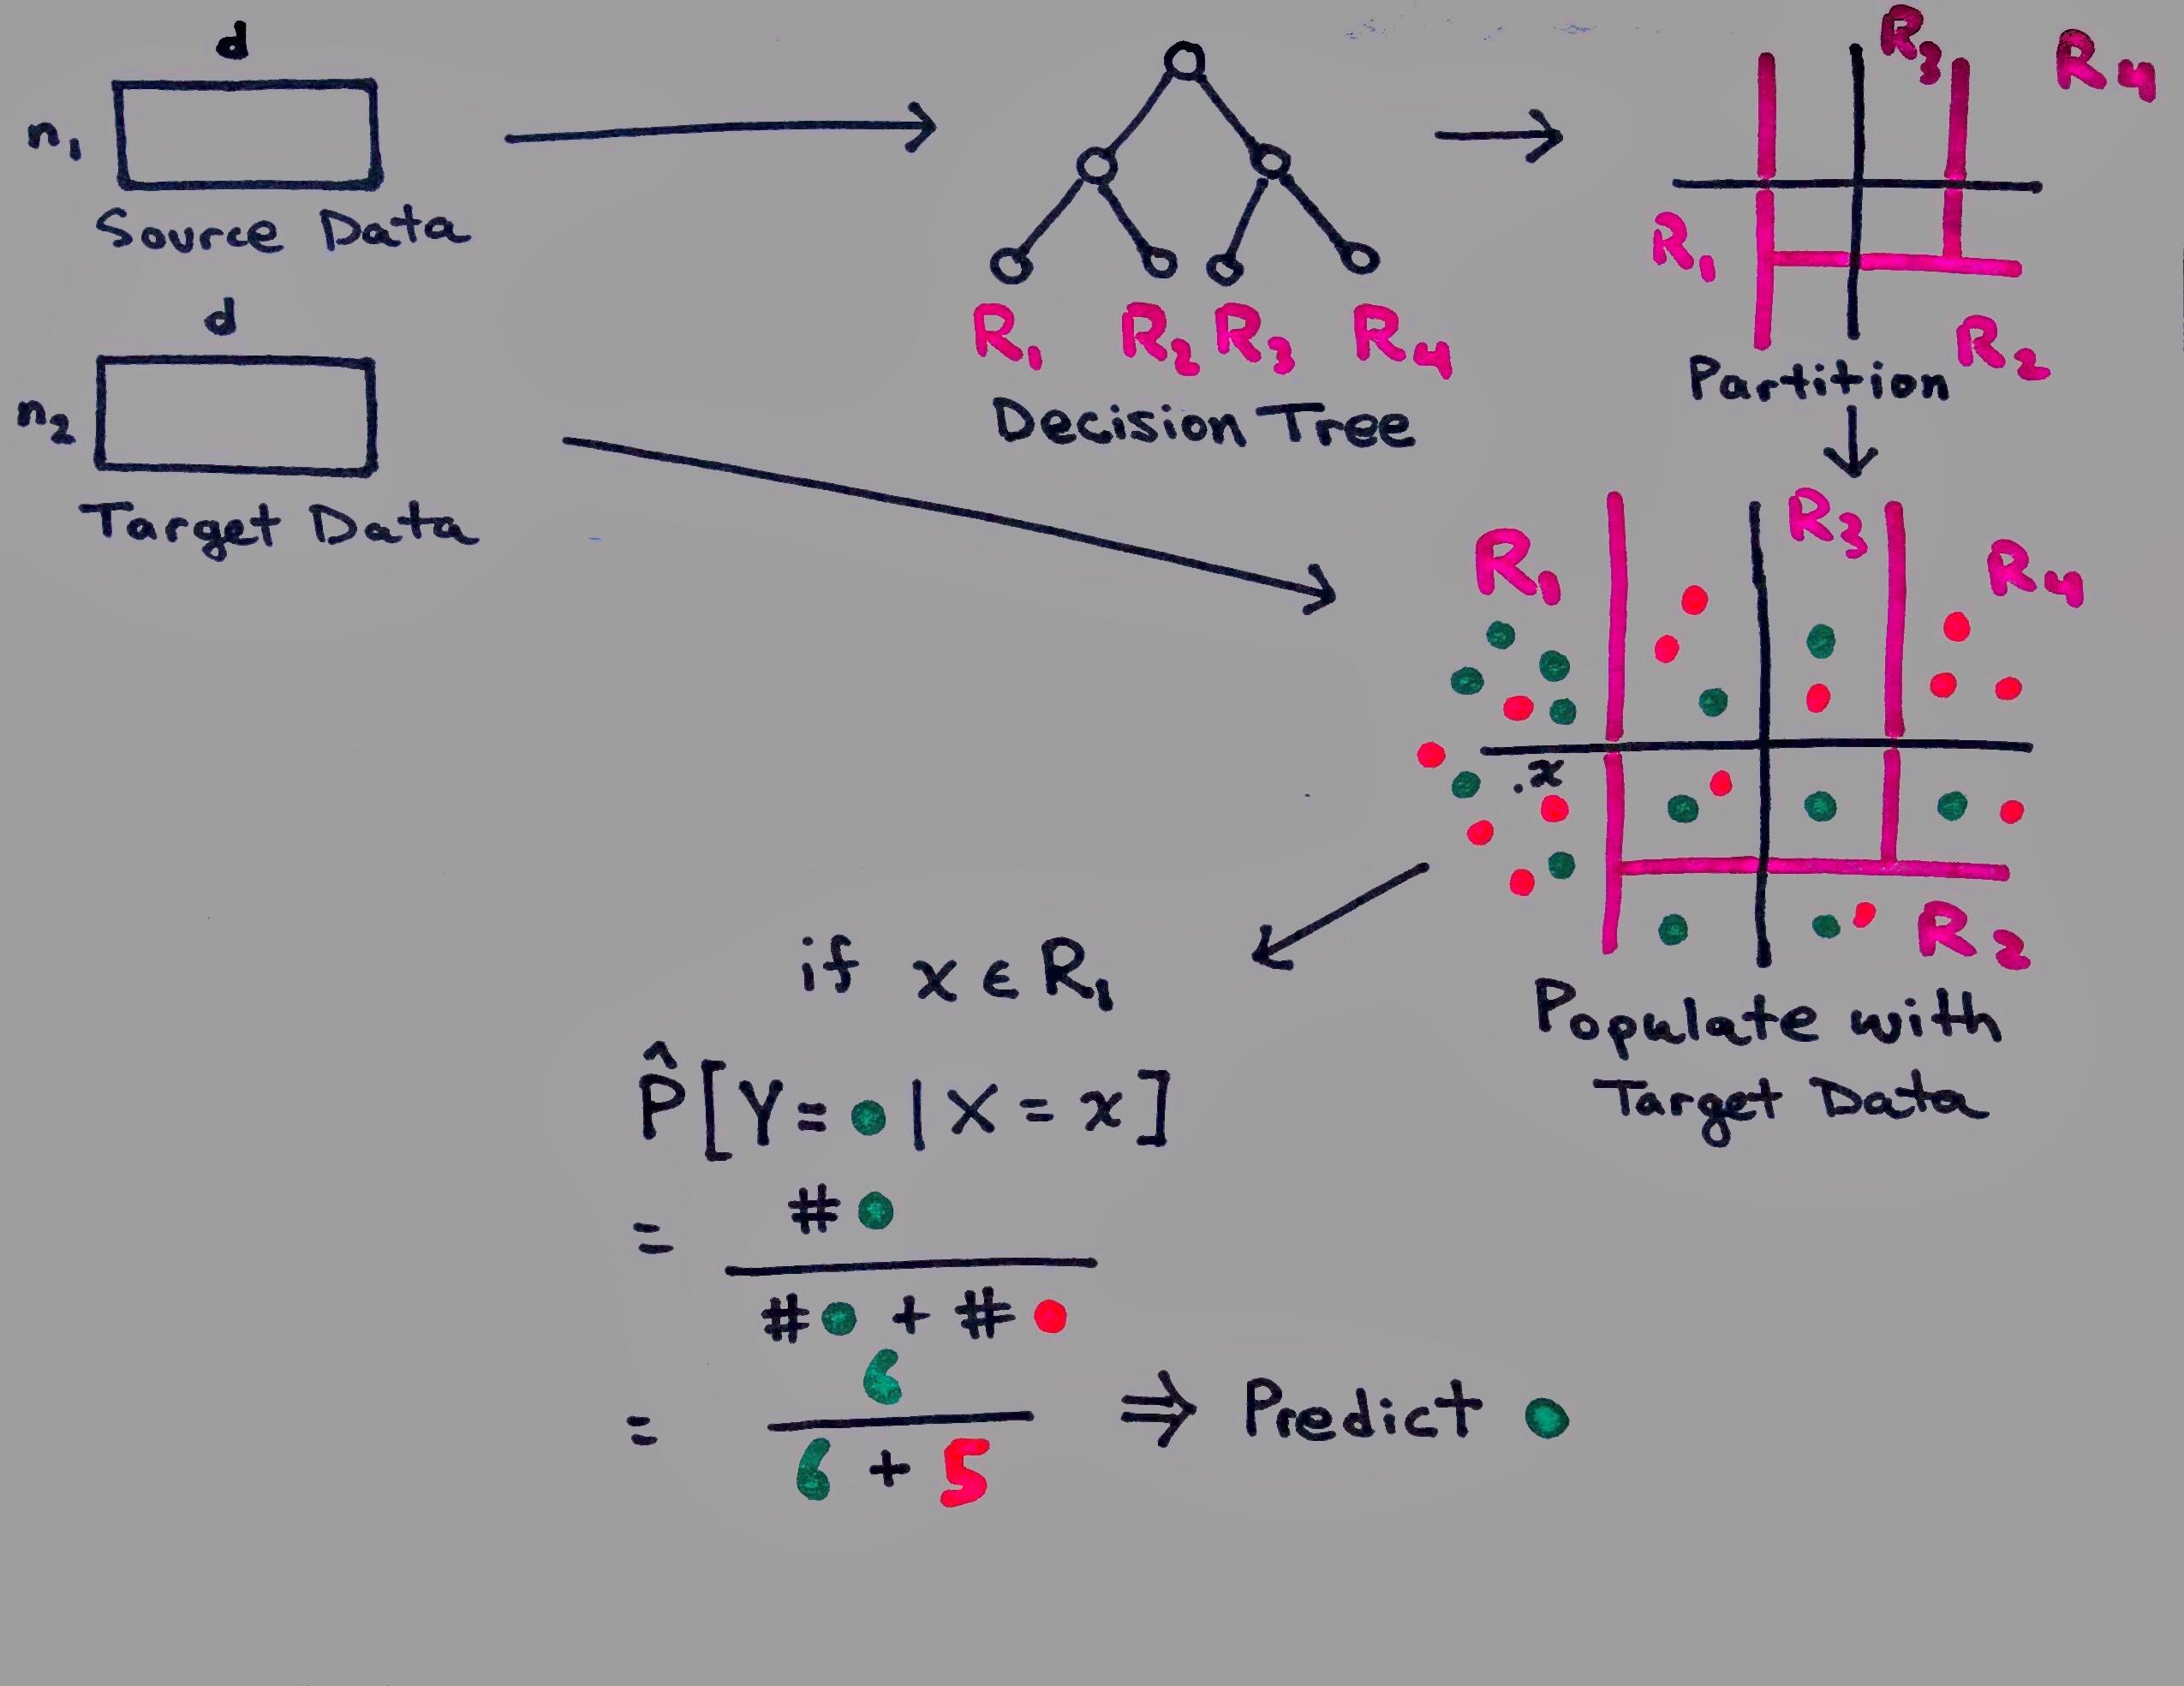 d
n₁
Source Data
d
n₂
Target Data
R₁ R₂ R₃ R₄
Decision Tree
R₃ R₄
R₁
R₂
Partition
R₁ R₃ R₄
.x
R₂
Populate with
Target Data
if x ∈ R₁
P̂[Y=● | X = x]
= #● / #● + #●
= 6 / 6 + 5 ⇒ Predict ●